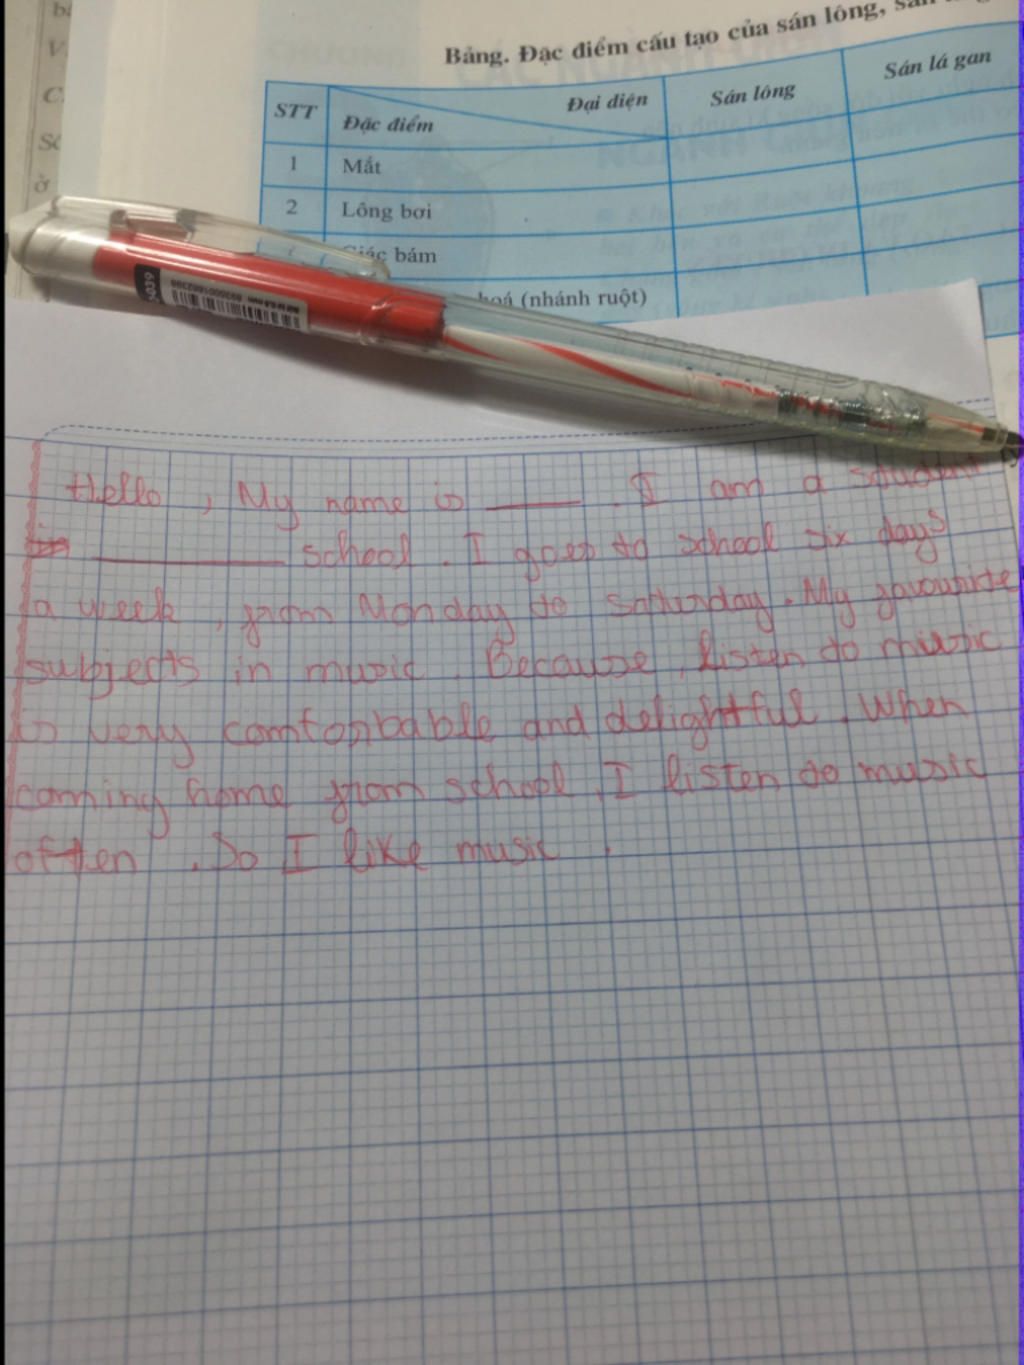 Bảng. Đặc điểm cấu tạo của sán lông,
STT Đặc điểm Đại diện Sán lông Sán lá gan
1 Mắt
2 Lông bơi
Giác bám
hoá (nhánh ruột)
5039
Hello, My name is ____. I am a student
in ____ school. I goes to school six days
a week, from Monday to saturday. My favourite
subjects in music. Because, listen to music
is very comfopbable and delightful. When
coming home from school, I listen to music
often. So I like music.